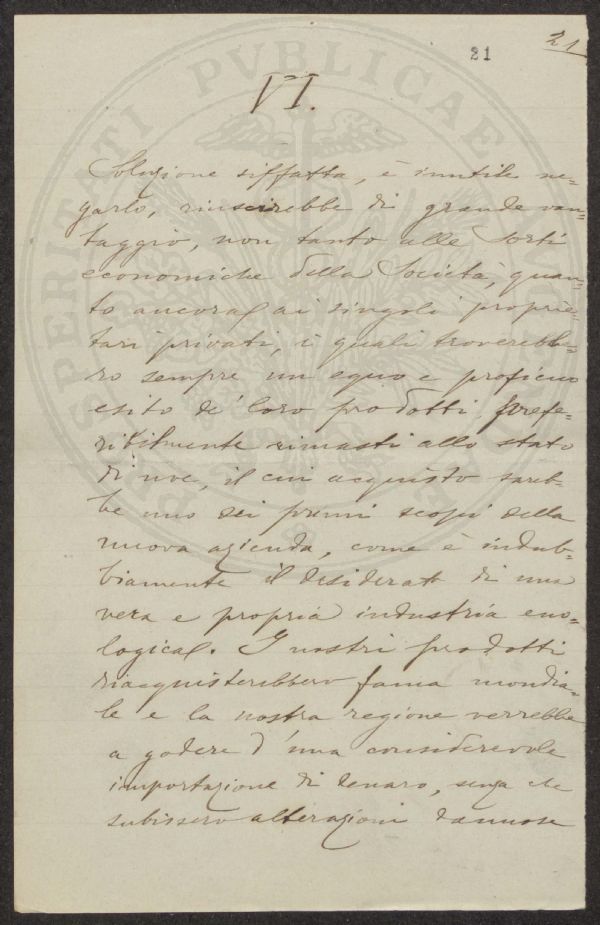 21
21
VI.
Soluzione siffatta, è inutile ne=
garlo, riuscirebbe di grande van=
taggio, non tanto alle sorti
economiche della Società, quan=
to ancora ai singoli proprie=
tari privati, i quali troverebbe=
ro sempre un equo e proficuo
esito de' loro prodotti, prefe=
ribilmente rimasti allo stato
di uve, il cui acquisto sareb=
be uno dei primi scopi della
nuova azienda, come è indub=
biamente il desiderato di una
vera e propria industria eno=
logica. I nostri prodotti
riacquisterebbero fama mondia=
le e la nostra regione verrebbe
a godere d'una considerevole
importazione di denaro, senza che
subissero alterazioni dannose
PROSPERITATI PVBLICAE AVGENDAE